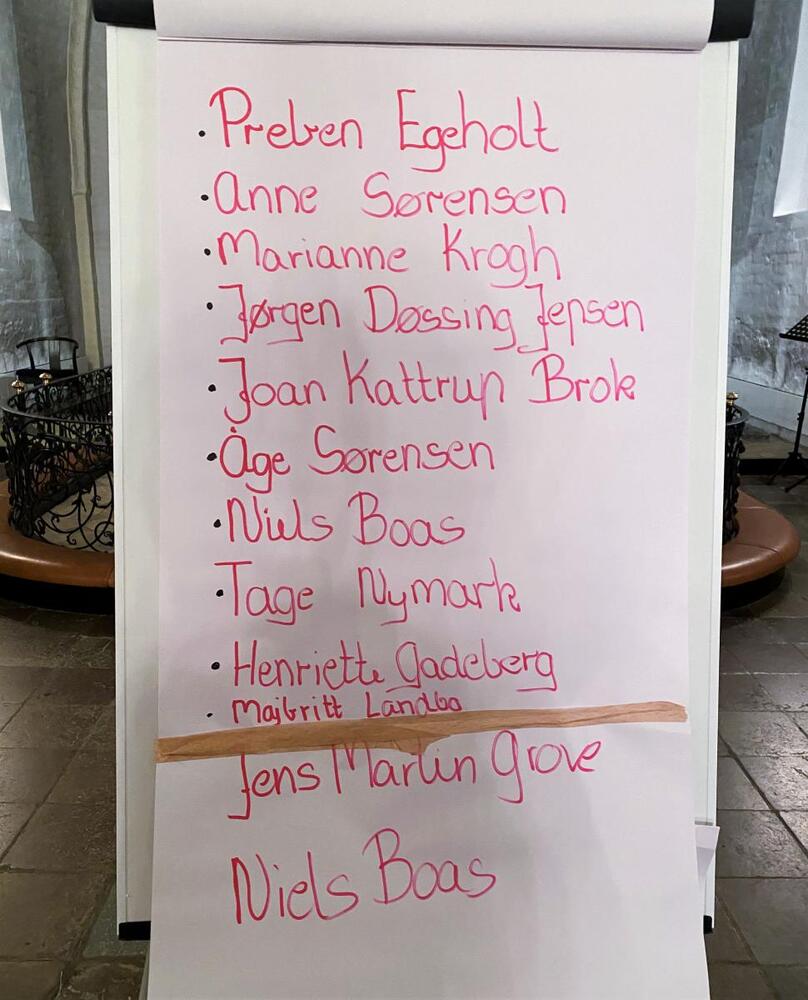 · Preben Egeholt
· Anne Sørensen
· Marianne Krogh
· Jørgen Døssing Jepsen
· Joan Kattrup Brok
· Åge Sørensen
· Niels Boas
· Tage Nymark
· Henriette Gadeberg
· Majbritt Landbo
Jens Martin Grove
Niels Boas